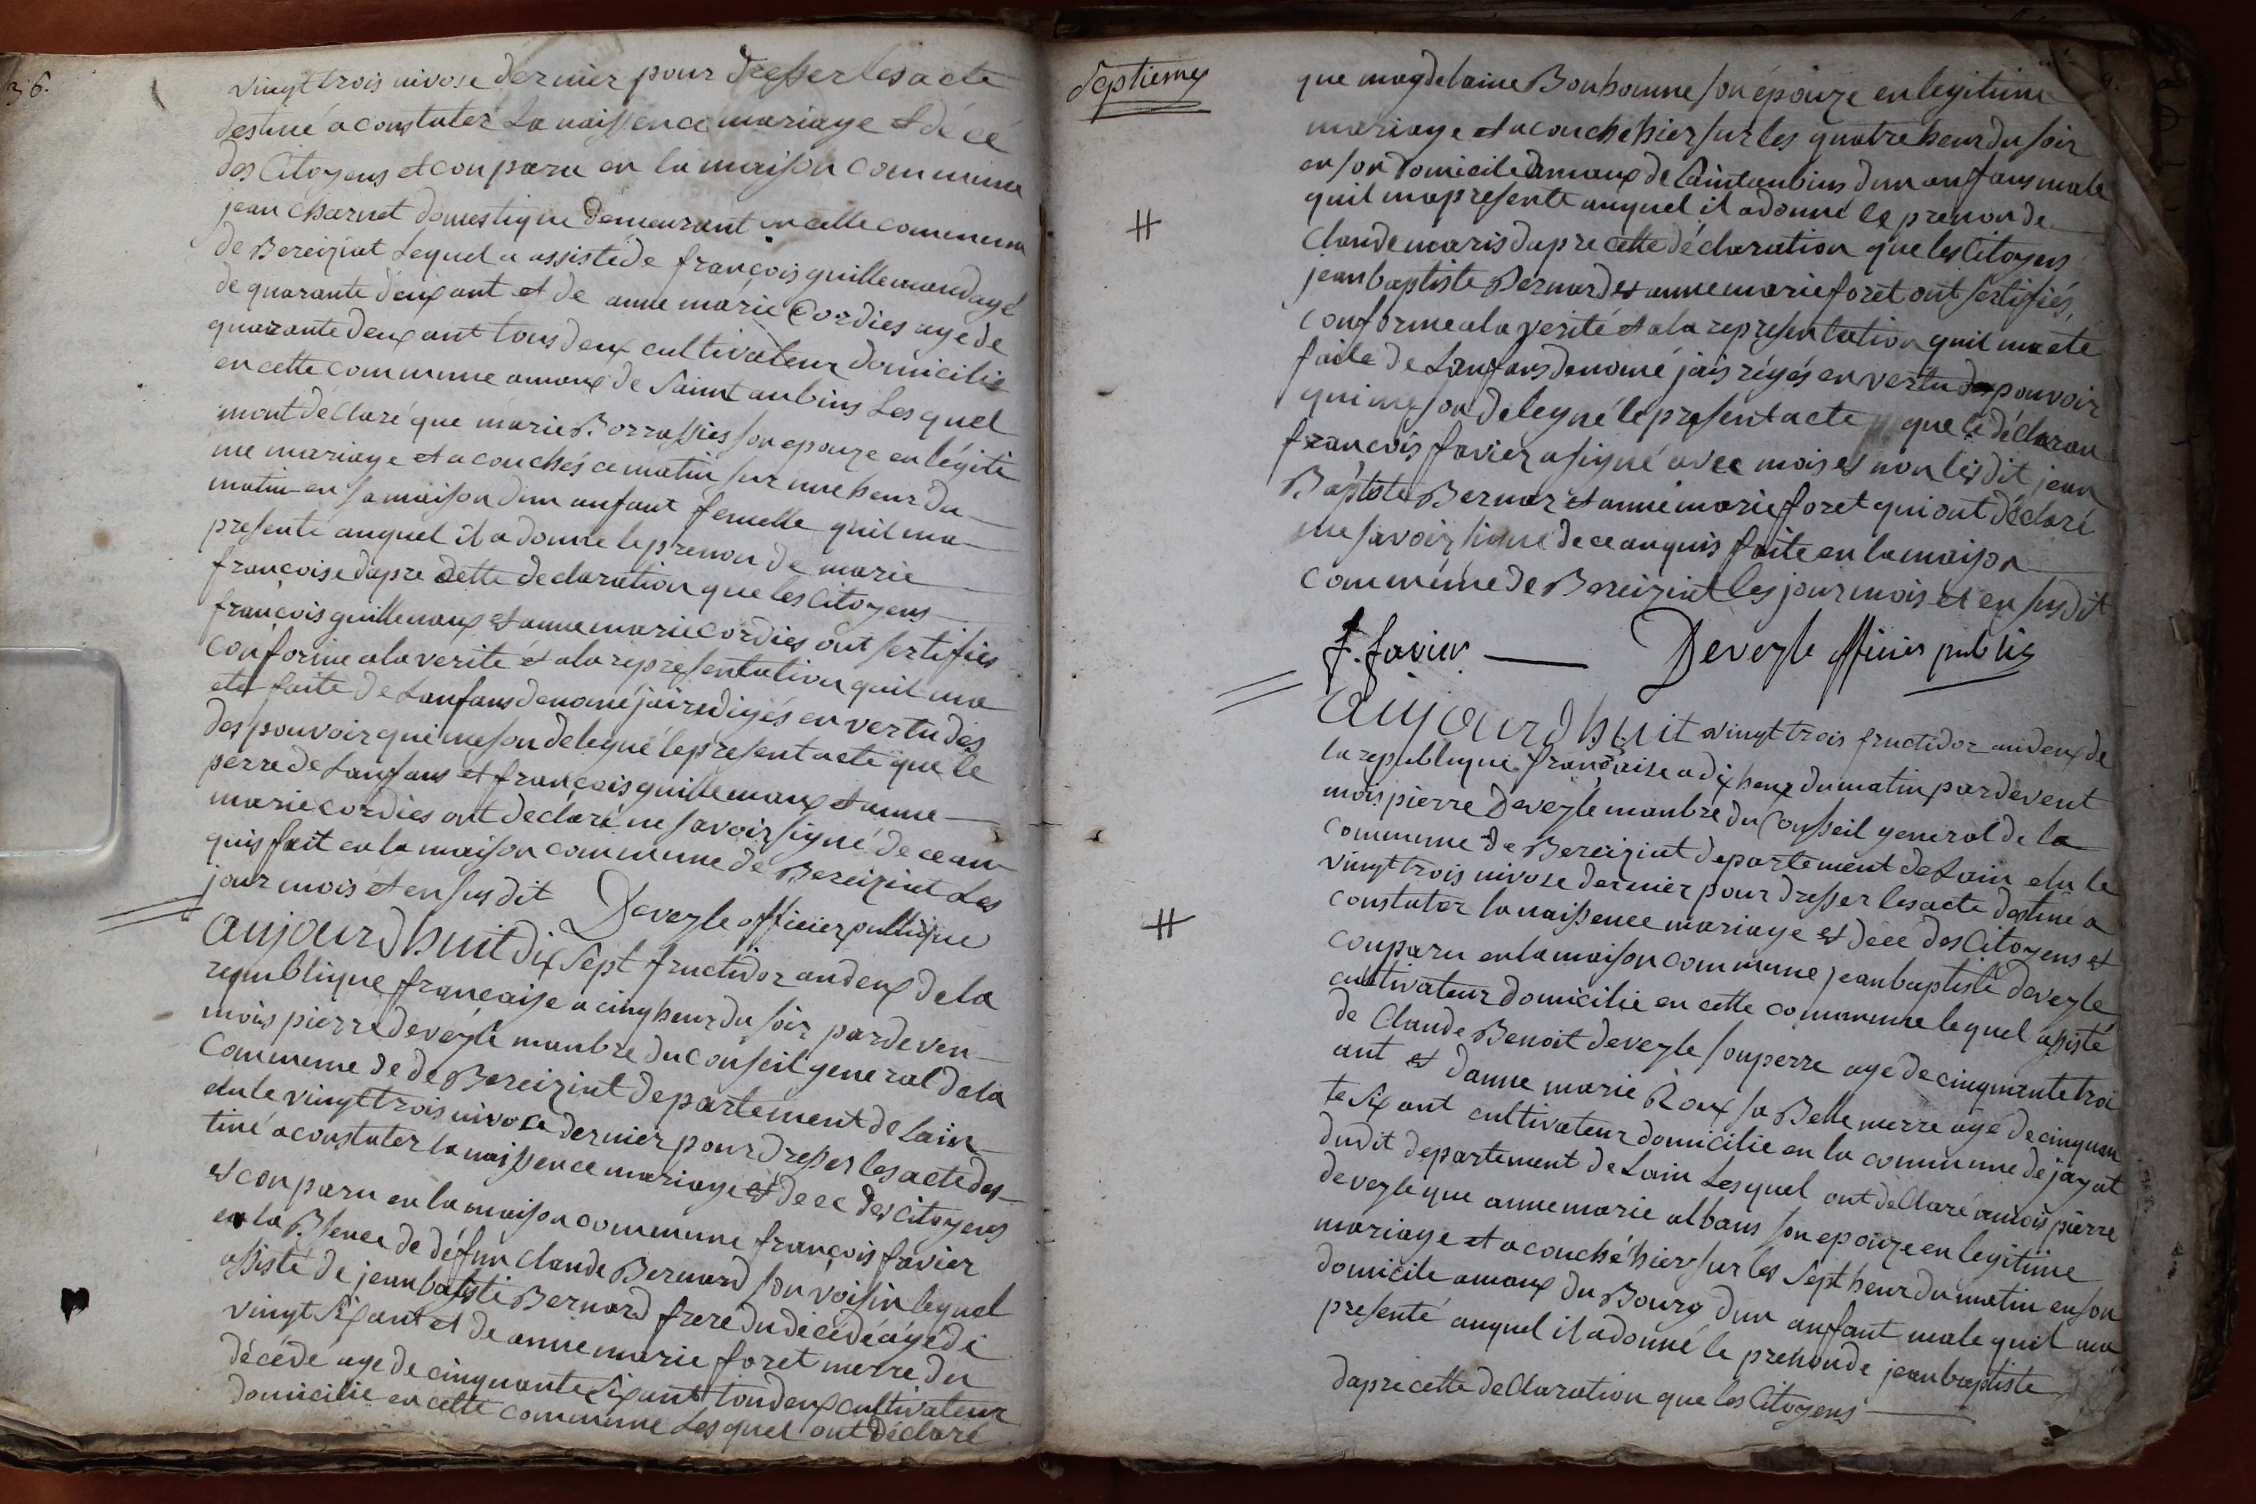 36.
vingt trois nivose dernier pour dresser les acte
destiné a constater La naissence mariage et décé
des Citoyens et conparu en la maison commune
jean charnet domestique demeurant en cette commune
de Bereiziat Lequel a assisté de françois guillemaud agé
de quarante deux ant et de anne marie Cordies age de
quarante deux ant tous deux cultivateur domicilié
en cette commune amaux de Saint aubins Les quel
mont déClaré que marie Borrassies son epouze en légiti
me mariage et acouchés ce matin sur une heur du
matin en sa maison dun anfant femelle quil ma
presenté auquel il a donné le prenon de marie
françoise dapre cette declaration que les Citoyens
françois guillemaux et anne marie cordies ont sertifies
conforme a la verité et a la representation quil ma
eté faite de Lanfans denomé jai redigés en vertu des
des pouvoir qui me son delegué le present acte que le
perre de Lanfans et françois guillemaux et anne
marie cordies ont declaré ne savoir signé de ce an
quis fait en la maison commune de Bereiziat Les
jour mois et en susdit Deveyle officier publique
aujourdhuit dix sept fructidor an deux de la
republique française a cinq heur du soir pardeven
mois pierre deveyle manbre du conseil general de la
commune de de Bereiziat departement de Lain
elu le vingt trois nivose dernier pour dresser les acte des
tiné a constater la naissence mariage et decé des Citoyens
et conparu en la maison commune françois favier
en la Bsence de défun Claude Bernard son voisin lequel
assisté de jean batiste Bernard frere du décédé agé de
vingt Six ant et de anne marie foret merre du
décédé age de cinquante Six ant tou deux cultivateur
domicilie en cette commune Les quel ont déclaré
Septieme
que magdelaine Bonhomme son épouze en legitime
mariage et acouché hier sur les quatre heur du soir
en son domicile amaux de Saint aubins dun anfans male
quil ma presenté auquel il a donné le prenon de
Claude maris dapre cette déclaration que les Citoyens
jean baptiste Bernard et anne marie foret ont sertifiés
conforme a la verité et a la representation quil ma eté
faite de Lanfans denomé jais rédigés en vertu des pouvoir
qui me son delegué le present acte que le déclaran
françois favier a signé avec mois et non les dit jean
Baptiste Bernar et anne marie foret qui ont déclaré
ne savoir signé de ce anquis faite en la maison
commune de Bereiziat les jour mois et en susdit
f. favier Deveyle officier publis
aujourdhuit vingt trois fructidor an deux de
la republique française a dix heur du matin par devent
mois pierre Deveyle manbre du Conseil general de la
commune de Bereiziat departement de Lain elu le
vingt trois nivose dernier pour dresser les acte destiné a
constater la naissence mariage et décé des Citoyens et
conparu en la maison commune jean baptiste deveyle
cultivateur domicilié en cette commune lequel assisté
de Claude Benoit deveyle son perre agé de cinquante troi
ant et danne marie Roux sa Belle merre agé de cinquan
te Six ant cultivateur domicilie en la commune de jayat
dudit departement de Lain Les quel ont déClaré a mois pierre
deveyle que anne marie albans son epouze en legitime
mariage et acouché hier sur les Sept heur du matin en son
domicile amaux du Bourg dun anfant male quil ma
presenté auquel il a donné le prenon de jean baptiste
dapre cette déClaration que les Citoyens